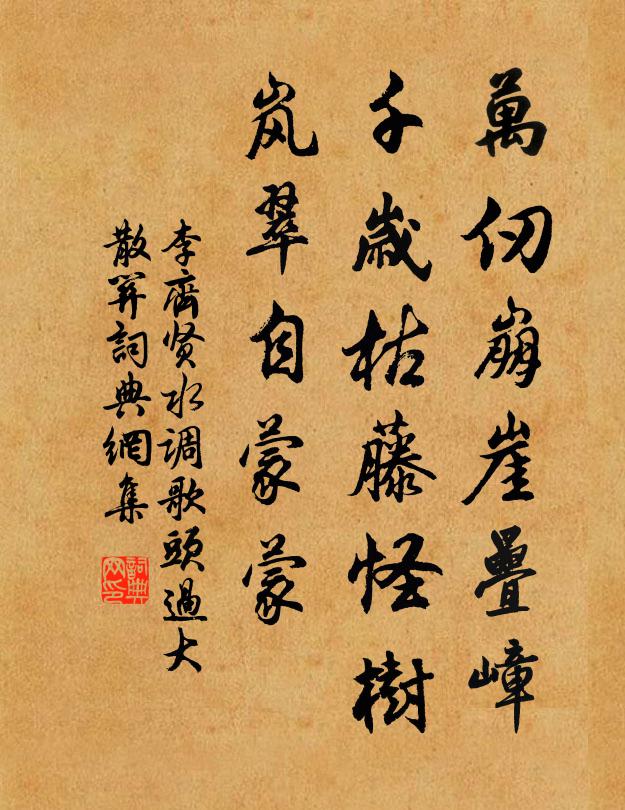 萬仞崩崖疊嶂
千歲枯藤怪樹
岚翠自蒙蒙
李齊贤水调歌頭過大
散關詞典網集
詞典网印